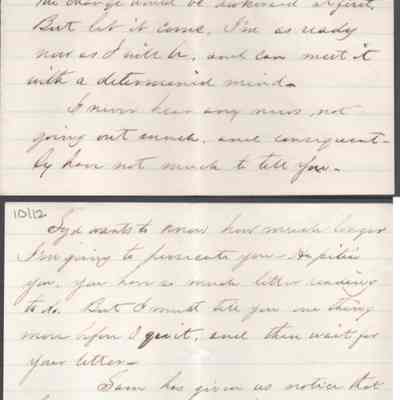 the change would be awkward at first.
But let it come, I'm as ready
now as I will be, and can meet it
with a determined mind.
I never hear any news, not
going out much, and consequent-
ly have not much to tell you.
10/12
wants to know how much longer
I'm going to persecute you. He pities
you, you have so much letter reading
to do. But I must tell you one thing
more before I quit, and then wait for
your letter.
Sam has given us notice that